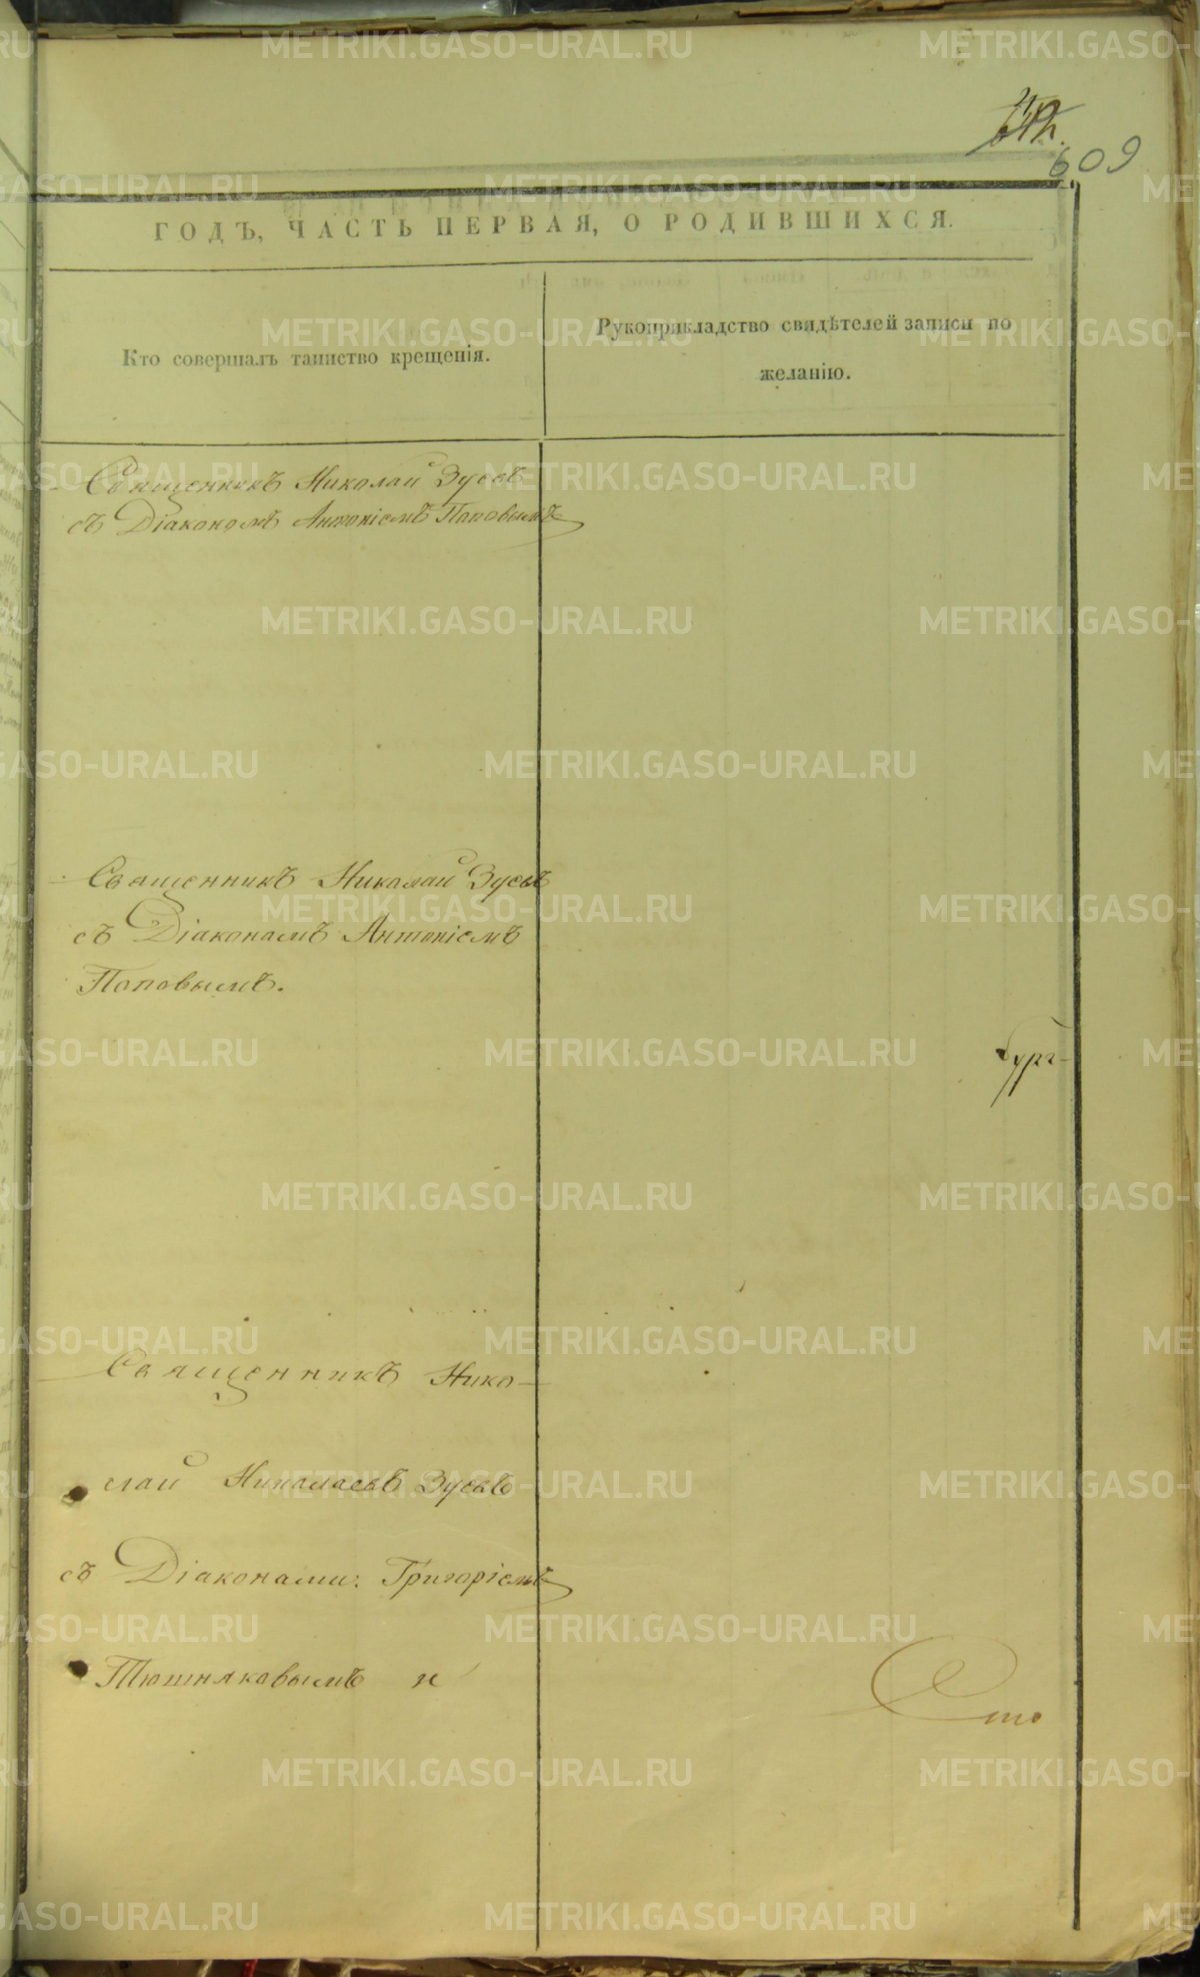 609
ГОДЪ, ЧАСТЬ ПЕРВАЯ, О РОДИВШИХСЯ.
Кто совершалъ таинство крещенія.
Рукоприкладство свидѣтелей записи по
желанію.
Священникъ Николай Зуевъ
съ Діакономъ Антоніемъ Поповымъ
Священникъ Николай Зуевъ
съ Діакономъ Антоніемъ
Поповымъ.
бург-
Священникъ Нико-
лай Николаевъ Зуевъ
съ Діаконами: Григоріемъ
Тюшняковымъ и
METRIKI.GASO-URAL.RU